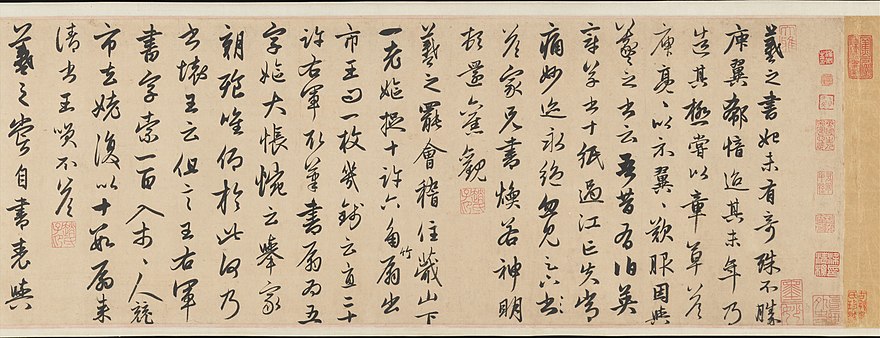 羲之書初未有奇殊不勝
庾翼郗愔迨其末年乃
造其極嘗以章草答
庾亮〻以示翼〻歎服因與
羲之書云吾昔有伯英
章草書十紙過江亡失常
痛妙迹永絕忽見足下書
答家兄書煥若神明
頓還舊觀
羲之罷會稽住蕺山下
一老嫗捉十許六角竹扇出
市王問一枚幾錢云直二十
許右軍取筆書扇為五
字嫗大悵惋云舉家
朝飡唯仰於此何乃
書壞王云但言王右軍
書字索一百入市〻人競
市去姥復以十數扇來
請書王笑不答
羲之嘗自書表與